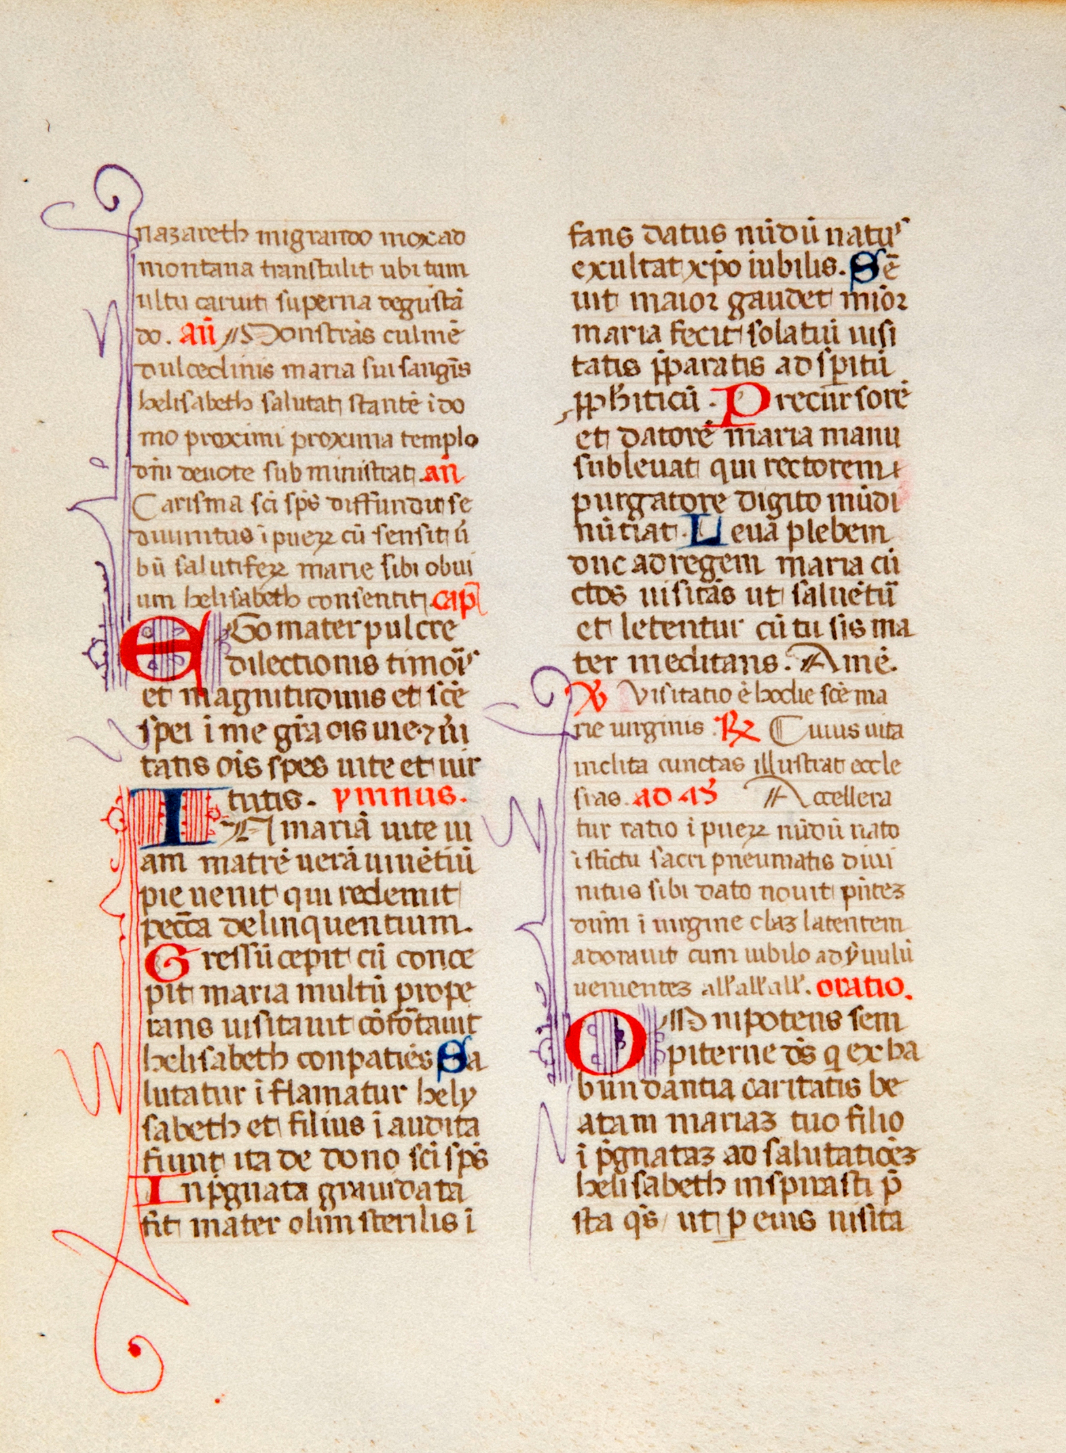 nazareth migrando mox ad
montana transtulit ubi tum
ultu caruit superna degustā
do. añ Monstrās culmē
dulcedinis maria sui sangīs
helisabeth salutat stantē ī do
mo proximi proxima templo
dñi deuote subministrat. añ
Carisma scī spūs diffunditur se
diuinitus ī pueꝝ cū sensit ū
bū salutifeꝝ marie sibi obui
um helisabeth consentit. cap̄
Ego mater pulcre
dilectionis timoīs
et magnitudinis et scē
spei ī me grā oīs uie ⁊ ūi
tatis oīs spes uite et uir
tutis. ymnus.
In mariā uite ui
am matrē uerā uiuētiū
pie uenit qui redemit
peccā delinquentium.
Gressū cepit cū conce
pit maria multū prope
rans uisitauit cōfōtauit
helisabeth conpatiēs Sa
lutatur īflamatur hely
sabeth et filius ī audita
fiunt ita de dono scī spūs
Inp̄gnata grauidata
fit mater olim sterilis ī
fans datus mūdū natus
exultat xp̄o iubilis. Sē
uit maior gaudet mīor
maria fecit solatiū uisi
tatis p̄paratis ad spiritū
p̄phīticū. Precursorē
et datorē maria manu
subleuat qui rectorem
purgatore digito mūdi
nūtiat. Leuā plebem
duc ad regem maria cū
ctos uisitās ut saluētū
et letentur cū tu sis ma
ter meditans. Amē.
℣ Visitatio ē hodie scē ma
rie uirginis. ℞ Cuius uita
inclita cunctas illustrat eccle
sias. ad Accellera
tur ratio ī pueꝝ mūdū nato
īstīctu sacri pneumatis diui
nitus sibi dato nouit p̄ntez
dūm ī uirgine claz latentem
adorauit cum iubilo ad p̄uulū
uenientez all'all'all'. oratio.
Omnipotens sem
piterne ds̄ q ex ha
bundantia caritatis be
atam mariaz tuo filio
īp̄gnataz ad salutatiōez
helisabeth inspirasti p̄
sta qs̄ ut p eius uisita